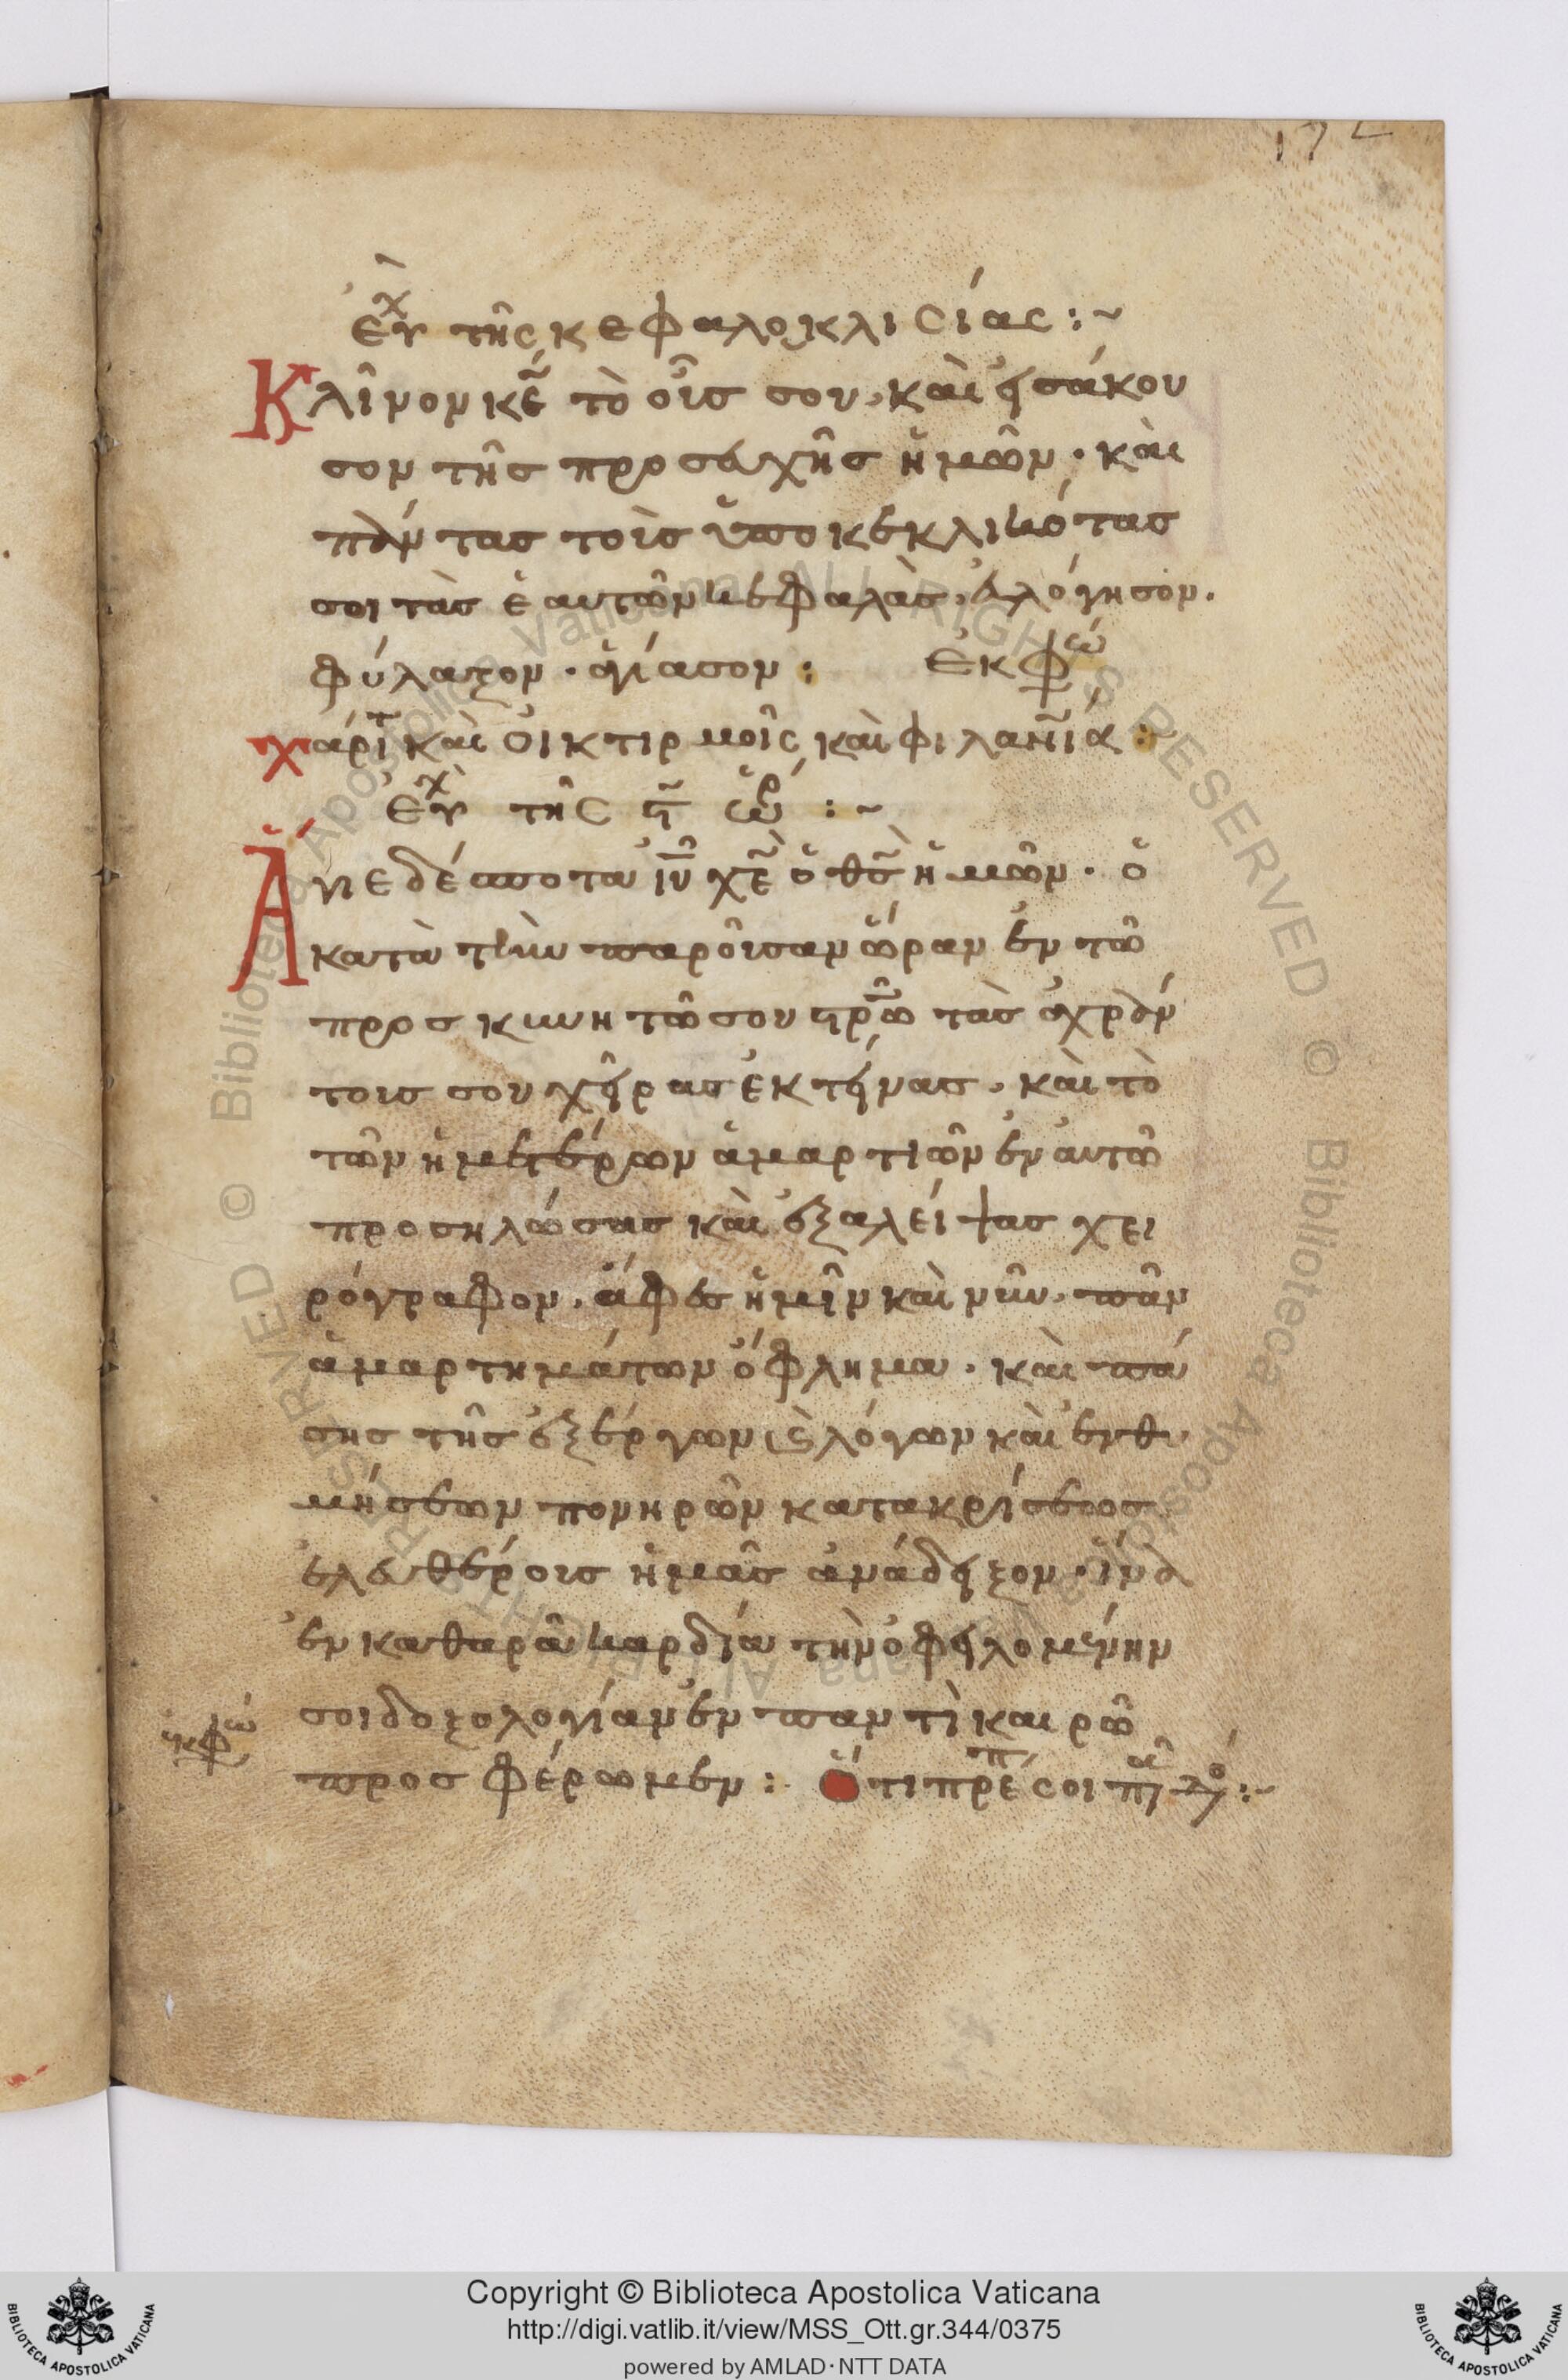 172
εὐχ τῆς κεφαλοκλισίας :~
Κλῖνον κε̃ τὸ οὖς σου, καὶ εἰσάκου
σον τῆς προσευχῆς ἡμῶν· καὶ
πάντας τοὺς ὑποκεκλικότας
σοι τὰς ἑαυτῶν κεφαλὰς, εὐλόγησον.
φύλαξον· ἁγίασον : ἐκφώ
χάριτ καὶ οἰκτιρμοῖς καὶ φιλανίᾳ :
εὐχ τῆς η̃ ὥρ :~
Ἅγιε δέσποτα ιῦ χε̃ ὁ θς̃ ἡμῶν· ὁ
κατὰ τὴν παροῦσαν ὥραν ἐν τῶ
προσκυνητῶ σου στρῶ τὰς ἀχράν
τους σου χεῖρας ἐκτείνας, καὶ τὸ
τῶν ἡμετέρων ἁμαρτιῶν ἐν αὐτῶ
προσηλώσας καὶ ἐξαλείψας χει
ρόγραφον, ἄφες ἡμῖν καὶ νῦν, πᾶν
ἁμαρτημάτων ὄφλημα· καὶ πά
σης τῆς ἐξ ἔργων ϛ λόγων καὶ ἐνθυ
μήσεων πονηρῶν κατακρίσεως
ἐλευθέρους ἡμᾶς ἀνάδειξον· ἵνα
ἐν καθαρᾶ καρδία τὴν ὀφειλομένην
σοι δοξολογίαν ἐν παντὶ καιρῶ
ἐκφώ
προσφέρωμεν : Ὅτι πρέπ σοι πᾶ δό :~
Copyright © Biblioteca Apostolica Vaticana
http://digi.vatlib.it/view/MSS_Ott.gr.344/0375
powered by AMLAD · NTT DATA
BIBLIOTECA APOSTOLICA VATICANA
BIBLIOTECA APOSTOLICA VATICANA